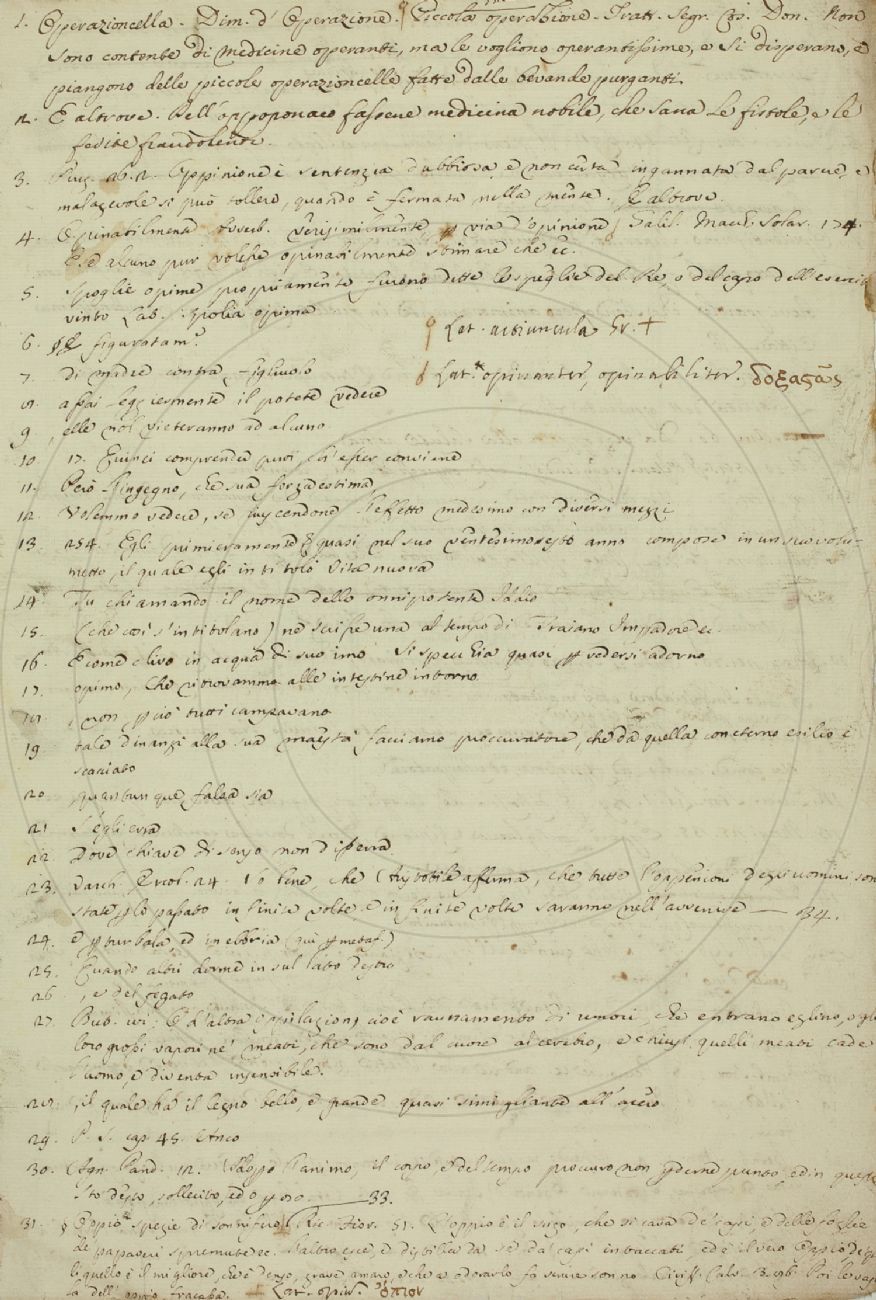 1. Operazioncella. Dim. d' Operazione. Piccola operazione. Tratt. Segr. Cos. Don. Non
sono contente di medicine operanti, ma le vogliono operantissime, e si disperano, e
piangono delle piccole operazioncelle fatte dalle bevande purganti.
2. E altrove. Dell' oppoponaco fassene medicina nobile, che sana le fistole, e le
fedite fraudolenti.
3. Oppinione è sentenzia dubbiosa, e non certa ingannata dal parere, e
malagevole si può tollere, quando è fermata nella mente. E altrove.
4. Opinabilmente. Avverb. Verisimilmente, p via d'opinione. Galil. Macch. Solar. 174.
E se alcuno pur volesse opinabilmente stimare che ec.
5. Spoglie opime propiamente furono dette le spoglie del Re, o del capo dell'esercito
vinto Lat. Spolia opima
6. figuratam.
♀ Lat. actiuncula Gr. +
7. di madre contra figliuolo
Lat. opinanter, opinabiliter. δοξαςῶς
8. assai leggiermente il potete vedere
9 , elle nol vieteranno ad alcuno
10 17. Quinci comprender puoi, ch'esser conviene
11. Però l'ingegno, che sua forza estima
12. Volemmo vedere, se succendone l'effetto medesimo con diversi mezzi
13. 254. Egli primieramente quasi nel suo ventesimosesto anno compose in un suo volu-
metto, il quale egli intitolò Vita nuova
14. Tu chiamando il nome dello onnipotente Iddio
15. (che così s'intitolano) ne scrisse una al tempo di Traiano Impadore ec.
16. E come clivo in acqua di suo imo Si specchia quasi p vedersi adorno
17. opimo, che ritrovammo alle intestine intorno
18 , non p ciò tutti campavano
19. tale dinanzi alla sua maestà facciamo proccuratore, che da quella con eterno esilio è
scacciato
20 , quantunque falsa sia
21 S'egli erra
22. Dove chiave di senso non disserra
23. Varch. Ercol. 24. Io tene, che Aristotile afferma, che tutte l'oppenioni degli uomini sono
state p lo passato infinite volte, e infinite volte saranno nell'avvenire — 34.
24. e p turbala, ed inebbria (qui p metaf.)
25. Quando altri dorme in sul lato destro
26 , e del fegato
27. But. ivi: E d'altra oppilazione, cioè rauttamento di umori, che entrano eglino, o gli
loro grossi vapori ne' meati, che sono dal cuore al cerebro, e chiusi quelli meati cade
l'uomo, e diventa insensibile.
28. , il quale ha il legno bello, e grande quasi simigliante all' acero
29. P. S. cap. 45.
30. Agn. Pand. 12. l'animo, il corpo, e del tempo proccuro non pderne punto, ed in questo
sto desto, sollecito, ed opposo. 33.
31. Oppio spezie di sonnifero. Ric. Fior. 51. L'oppio è il sugo, che si cava de' capi, e delle foglie
de' papaveri spremute ec. l'altro esce, e distilla da sè da' capi intaccati, ed è il vero
quello è il migliore, che è denso, grave amaro, e che a odorarlo fa venire sonno. Ciriff. Calv.
Lat. opium. ὄπιον